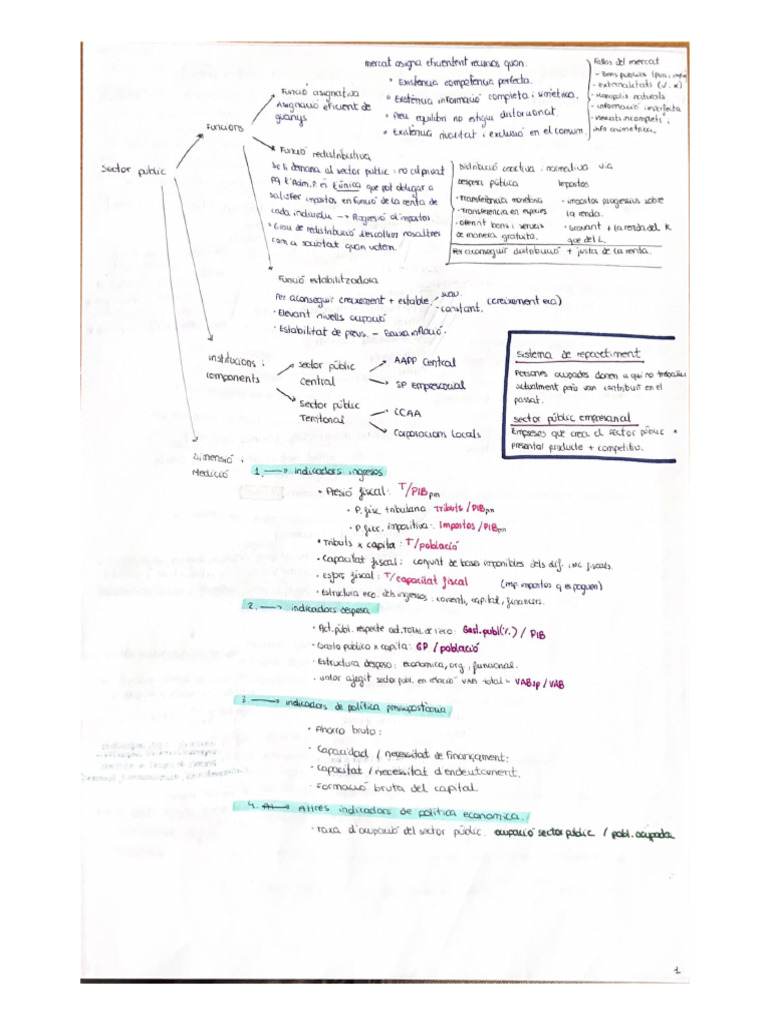 Sector públic
Funcions
Funció asignativa
Asignació eficient de
guanys
mercat asigna eficientent recursos quan:
• Existència competència perfecta.
• Existència informació completa i simètrica.
• Preu equilibri no estigui distorsionat.
• Existència rivalitat i exclusió en el consum.
Fallos del mercat
- Bens públics
- externalitats
- Monopolis naturals
- informació imperfecta
- Mercats incomplets i
info asimètrica.
• Funció redistributiva
Se li demana al sector públic i no al privat
pq l'Adm. P. és l'única que pot obligar a
satisfer impostos en funció de la renta de
cada individu → Progresió al impostos.
• Grau de redistribució l'escollim nosaltres
com a societat quan votem.
Distribució positiva i normativa
Despesa pública
• Transferència monetaria
• Transferencia en especies
• Oferint bens i serveis
de manera gratuita.
Impostos
• impostos progresius sobre
la renda.
• Gravant + la renda del K
que del L.
Per aconseguir distribució + justa de la renta.
Funció estabilitzadora
Per aconseguir creixement + estable
suau
constant.
(creixement eco)
• Elevant nivells ocupació
• Estabilitat de preus. - Baixa inflació.
Institucions i
components
Sector públic
central
AAPP Central
SP Empresarial
Sector públic
Territorial
CCAA
Corporacions Locals
Sistema de repartiment
Persones ocupades donen a qui no treballa
actualment però van contribuir en el
passat.
sector públic empresarial
Empreses que crea el sector públic x
presentar producte + competitiu.
Dimensió i
Medició
1. → indicadors ingresos
• Presió fiscal: T/PIBpm
• P. fisc tributaria Tributs/PIBpm
• P. fisc. impositiva: Impostos/PIBpm
• Tributs x capita: T/població
• Capacitat fiscal: conjunt de bases imponibles dels dif. ing fiscals.
• Esforç fiscal: T/capacitat fiscal (imp. impostos q es paguen)
• Estructura eco. dels ingresos: corrents, capital, financers.
2. → indicadors despesa
• Act. públ. respecte act. TOTAL de l'eco: Gast. publ(%) / PIB
• Gasto público x capita: GP / població
• Estructura despesa: economica, org, funcional.
• Valor afegit sector públ. en relació VAB total = VABsp / VAB
3. → indicadors de política presupostaria
• Ahorro bruto:
• Capacidad / necessitat de finançament:
• Capacitat / necessitat d'endeutament.
• Formació bruta del capital
4. → Altres indicadors de política economica.
• Taxa d'ocupació del sector públic. ocupació sector public / pobl. ocupada
1